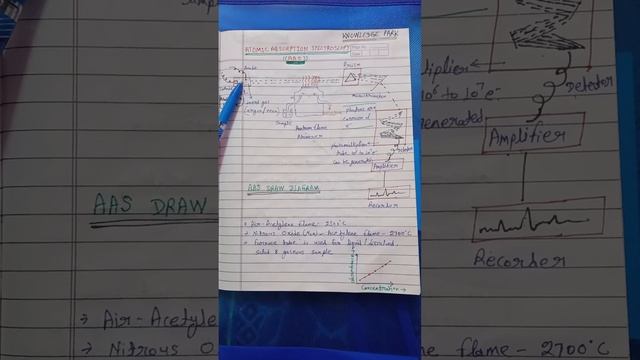 KNOWLEDGE PARK
ATOMIC ABSORPTION SPECTROSCOPY
(AAS)
Anode
Prism
Monochromator
Inert gas
(argon/neon)
Sample
Photomultiplier
tube 10⁶ to 10⁷ e⁻
can be generated
Detector
Amplifier
Recorder
AAS DRAW DIAGRAM
→ Air-Acetylene flame- 2100°C
→ Nitrous Oxide (N₂O)- Acetylene flame - 2700°C
→ Furnace tube is used for liquid/
solid & gaseous sample
Concentration →
AAS DRAW
→ Air-Acetyle
→ Nitrous O
tiplier
10⁶ to 10⁷ e⁻
generated
Detector
Amplifier
Recorder
flame - 2700°C